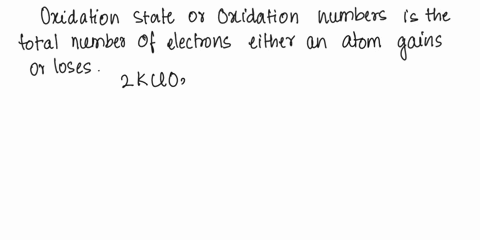 Oxidation state or Oxidation numbers is the
total number of electrons either an atom gains
or loses.
2KClO,